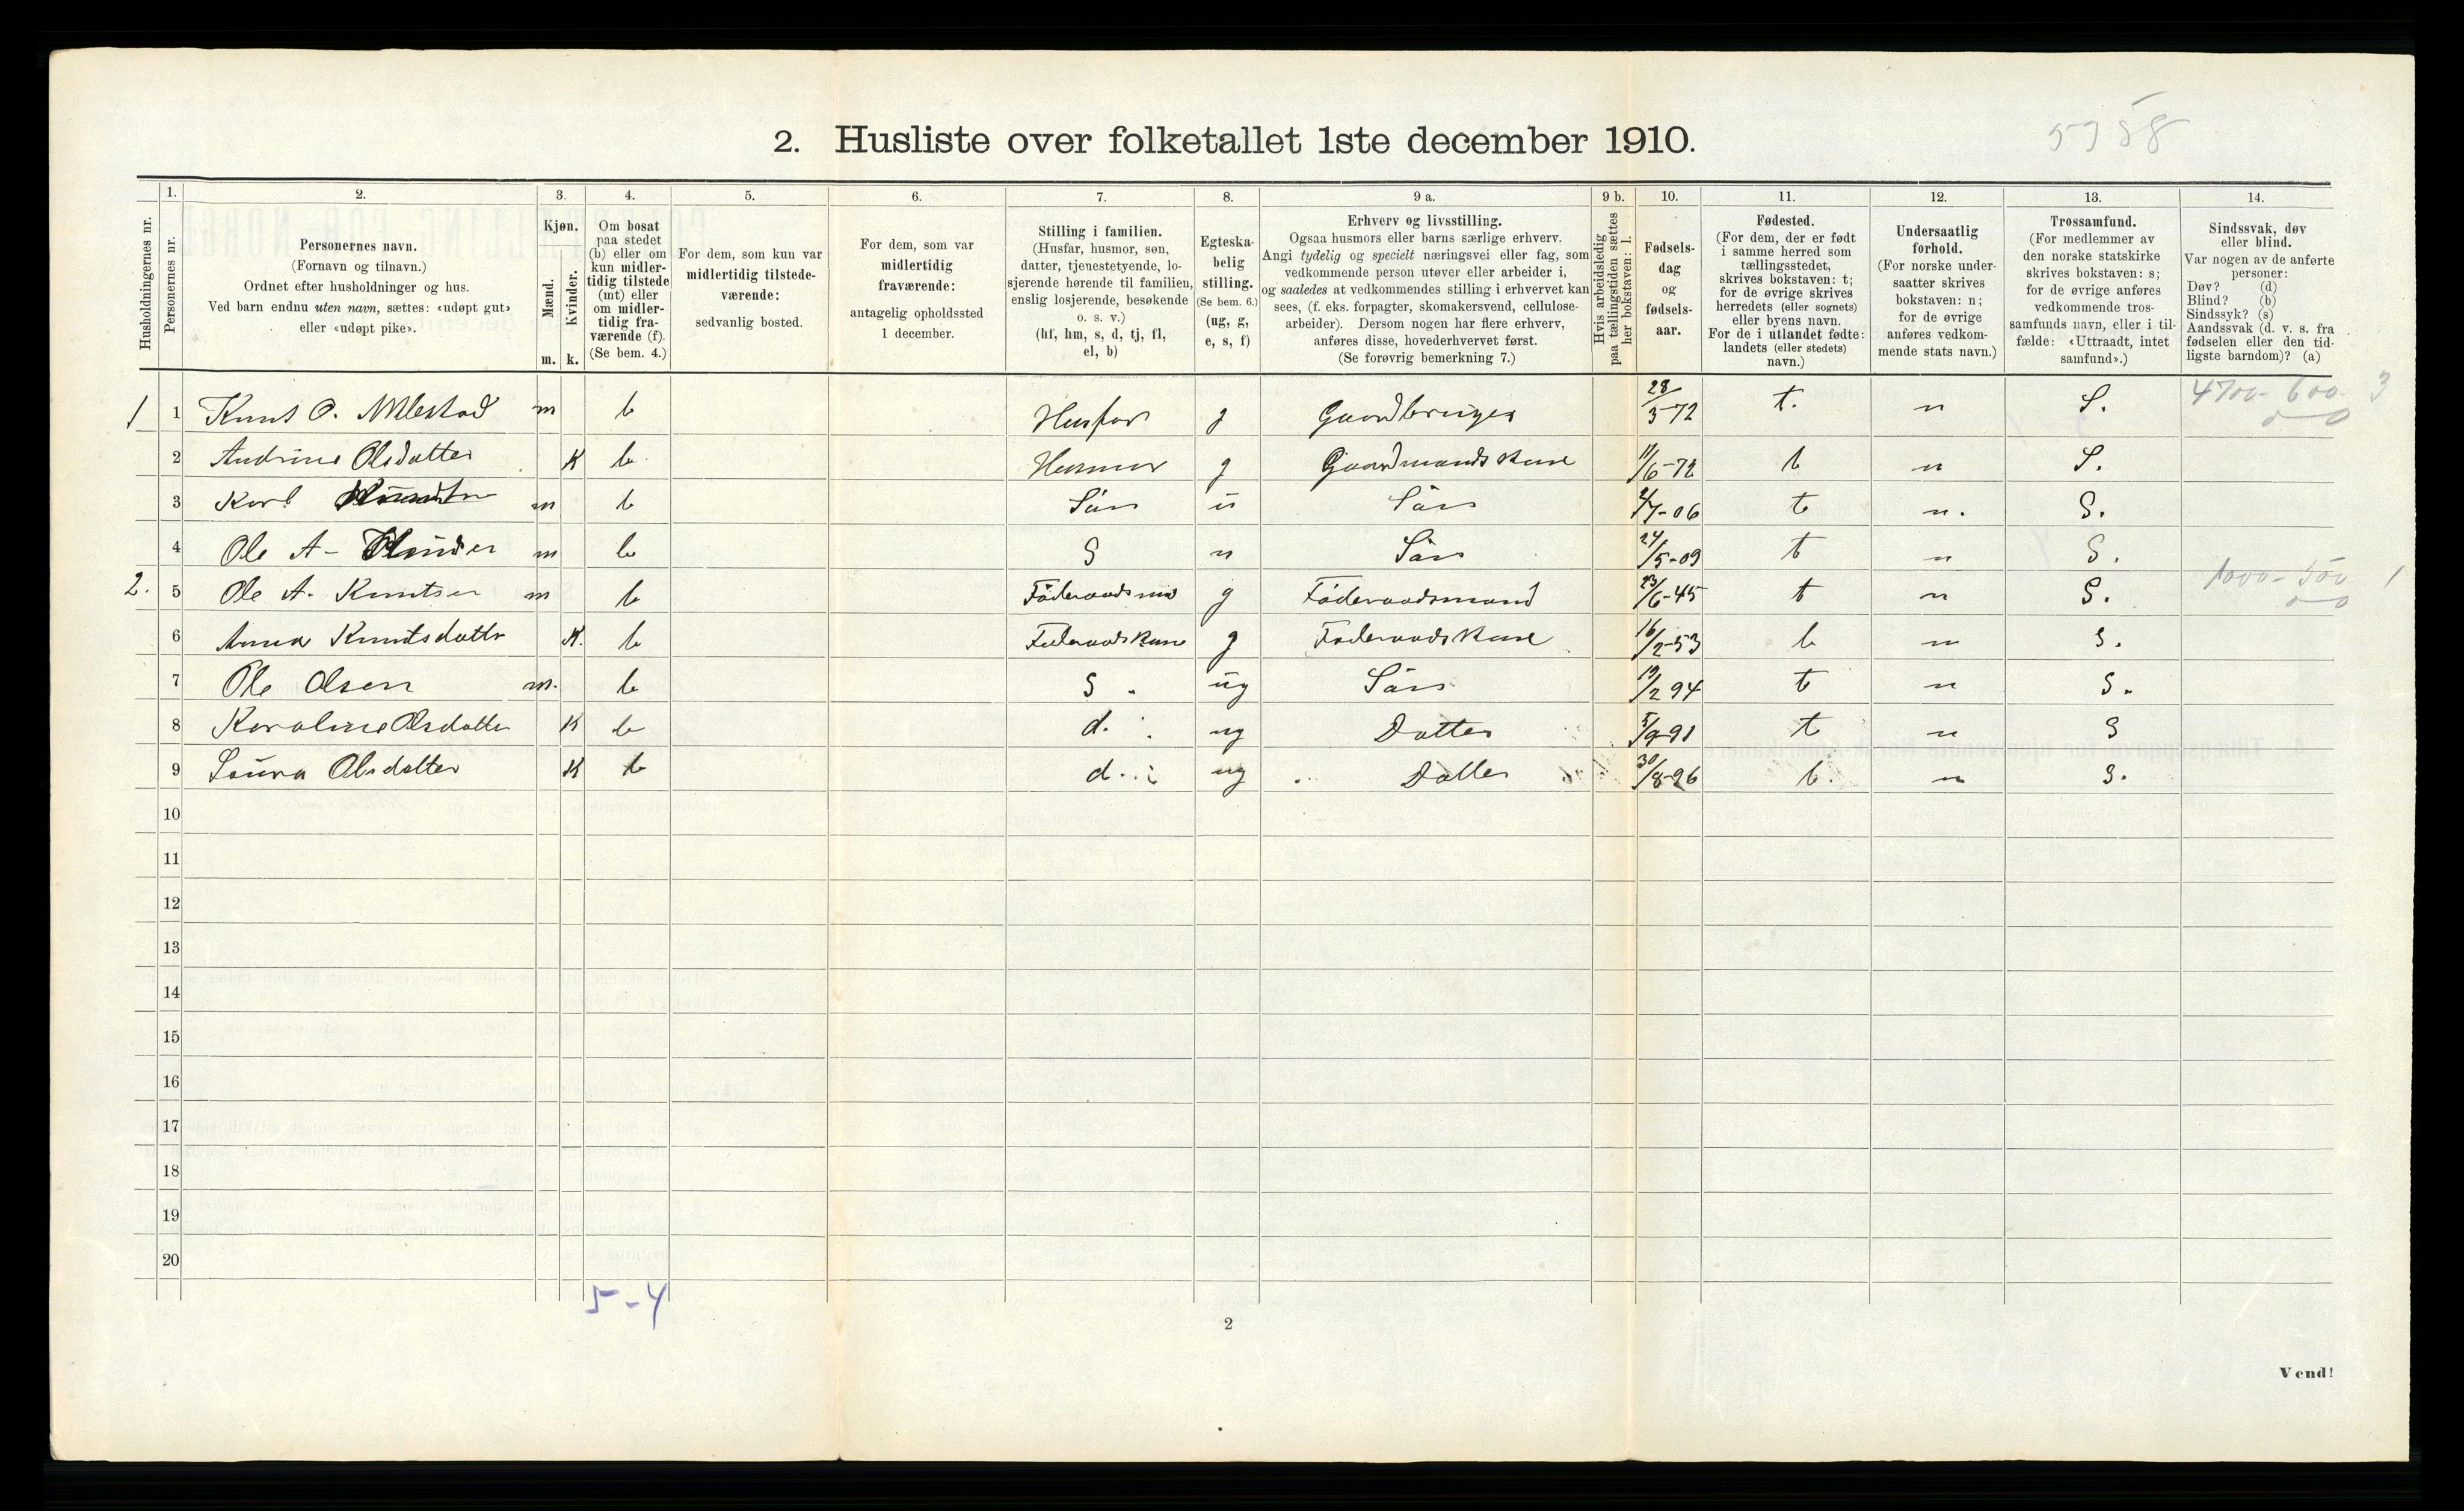 5958
2. Husliste over folketallet 1ste december 1910.
Husholdningernes nr.
1.
Personernes nr.
2.
Personernes navn.
(Fornavn og tilnavn.)
Ordnet efter husholdninger og hus.
Ved barn endnu uten navn, sættes: «udøpt gut»
eller «udøpt pike».
3.
Kjøn.
Mænd.
Kvinder.
m. k.
4.
Om bosat
paa stedet
(b) eller om
kun midler-
tidig tilstede
(mt) eller
om midler-
tidig fra-
værende (f).
(Se bem. 4.)
5.
For dem, som kun var
midlertidig tilstede-
værende:
sedvanlig bosted.
6.
For dem, som var
midlertidig
fraværende:
antagelig opholdssted
1 december.
7.
Stilling i familien.
(Husfar, husmor, søn,
datter, tjenestetyende, lo-
sjerende hørende til familien,
enslig losjerende, besøkende
o. s. v.)
(hf, hm, s, d, tj, fl,
el, b)
8.
Egteska-
belig
stilling.
(Se bem. 6.)
(ug, g,
e, s, f)
9 a.
Erhverv og livsstilling.
Ogsaa husmors eller barns særlige erhverv.
Angi tydelig og specielt næringsvei eller fag, som
vedkommende person utøver eller arbeider i,
og saaledes at vedkommendes stilling i erhvervet kan
sees, (f. eks. forpagter, skomakersvend, cellulose-
arbeider). Dersom nogen har flere erhverv,
anføres disse, hovederhvervet først.
(Se forøvrig bemerkning 7.)
9 b.
Hvis arbeidsledig
paa tællingstiden sættes
her bokstaven: l.
10.
Fødsels-
dag
og
fødsels-
aar.
11.
Fødested.
(For dem, der er født
i samme herred som
tællingsstedet,
skrives bokstaven: t;
for de øvrige skrives
herredets (eller sognets)
eller byens navn.
For de i utlandet fødte:
landets (eller stedets)
navn.)
12.
Undersaatlig
forhold.
(For norske under-
saatter skrives
bokstaven: n;
for de øvrige
anføres vedkom-
mende stats navn.)
13.
Trossamfund.
(For medlemmer av
den norske statskirke
skrives bokstaven: s;
for de øvrige anføres
vedkommende tros-
samfunds navn, eller i til-
fælde: «Uttraadt, intet
samfund».)
14.
Sindssvak, døv
eller blind.
Var nogen av de anførte
personer:
Døv? (d)
Blind? (b)
Sindssyk? (s)
Aandssvak (d. v. s. fra
fødselen eller den tid-
ligste barndom)? (a)
1 1 Knut O. m b Husfar g Gaardbruger 28/3-72 t. n S. 4700-600- 3
2 Andrine Olsdatter K b. Husmor g Gaardmandskone 11/6-72 t n S.
3 Karl m b Sön u Sön 2/7-06 t n. S.
4 Ole A- m b S u Sön 24/5-09 t n S.
2. 5 Ole A. Knutsen m b Föderaadsma g Föderaadsmand 23/6-45 t n S. 1000-500 1
6 Anna Knutsdattr K. b Föderaadskone g Föderaadskone 16/2-53 t n S.
7 Ole Olsen m. b S. ug Sön 19/2 94 t n S.
8 Karoline Olsdattr K b d. ug Datter 5/9-91 t n S
9 Laura Olsdatter K b d. ug Datter 30/8-96 t. n S.
10
11
12
13
14
15
16
17
18
19
20
5-4
2
Vend!